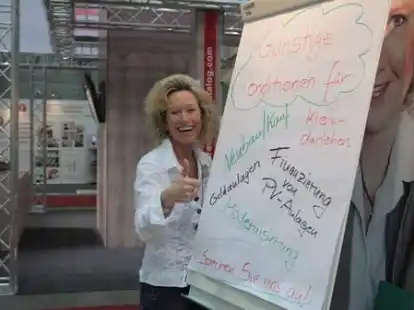 talog.com
Günstige
Konditionen für
Neubau/Kauf
Klein-
darlehen
Geldanlagen
Finanzierung
von
PV-Anlagen
Modernisierung
Sprechen Sie uns an!